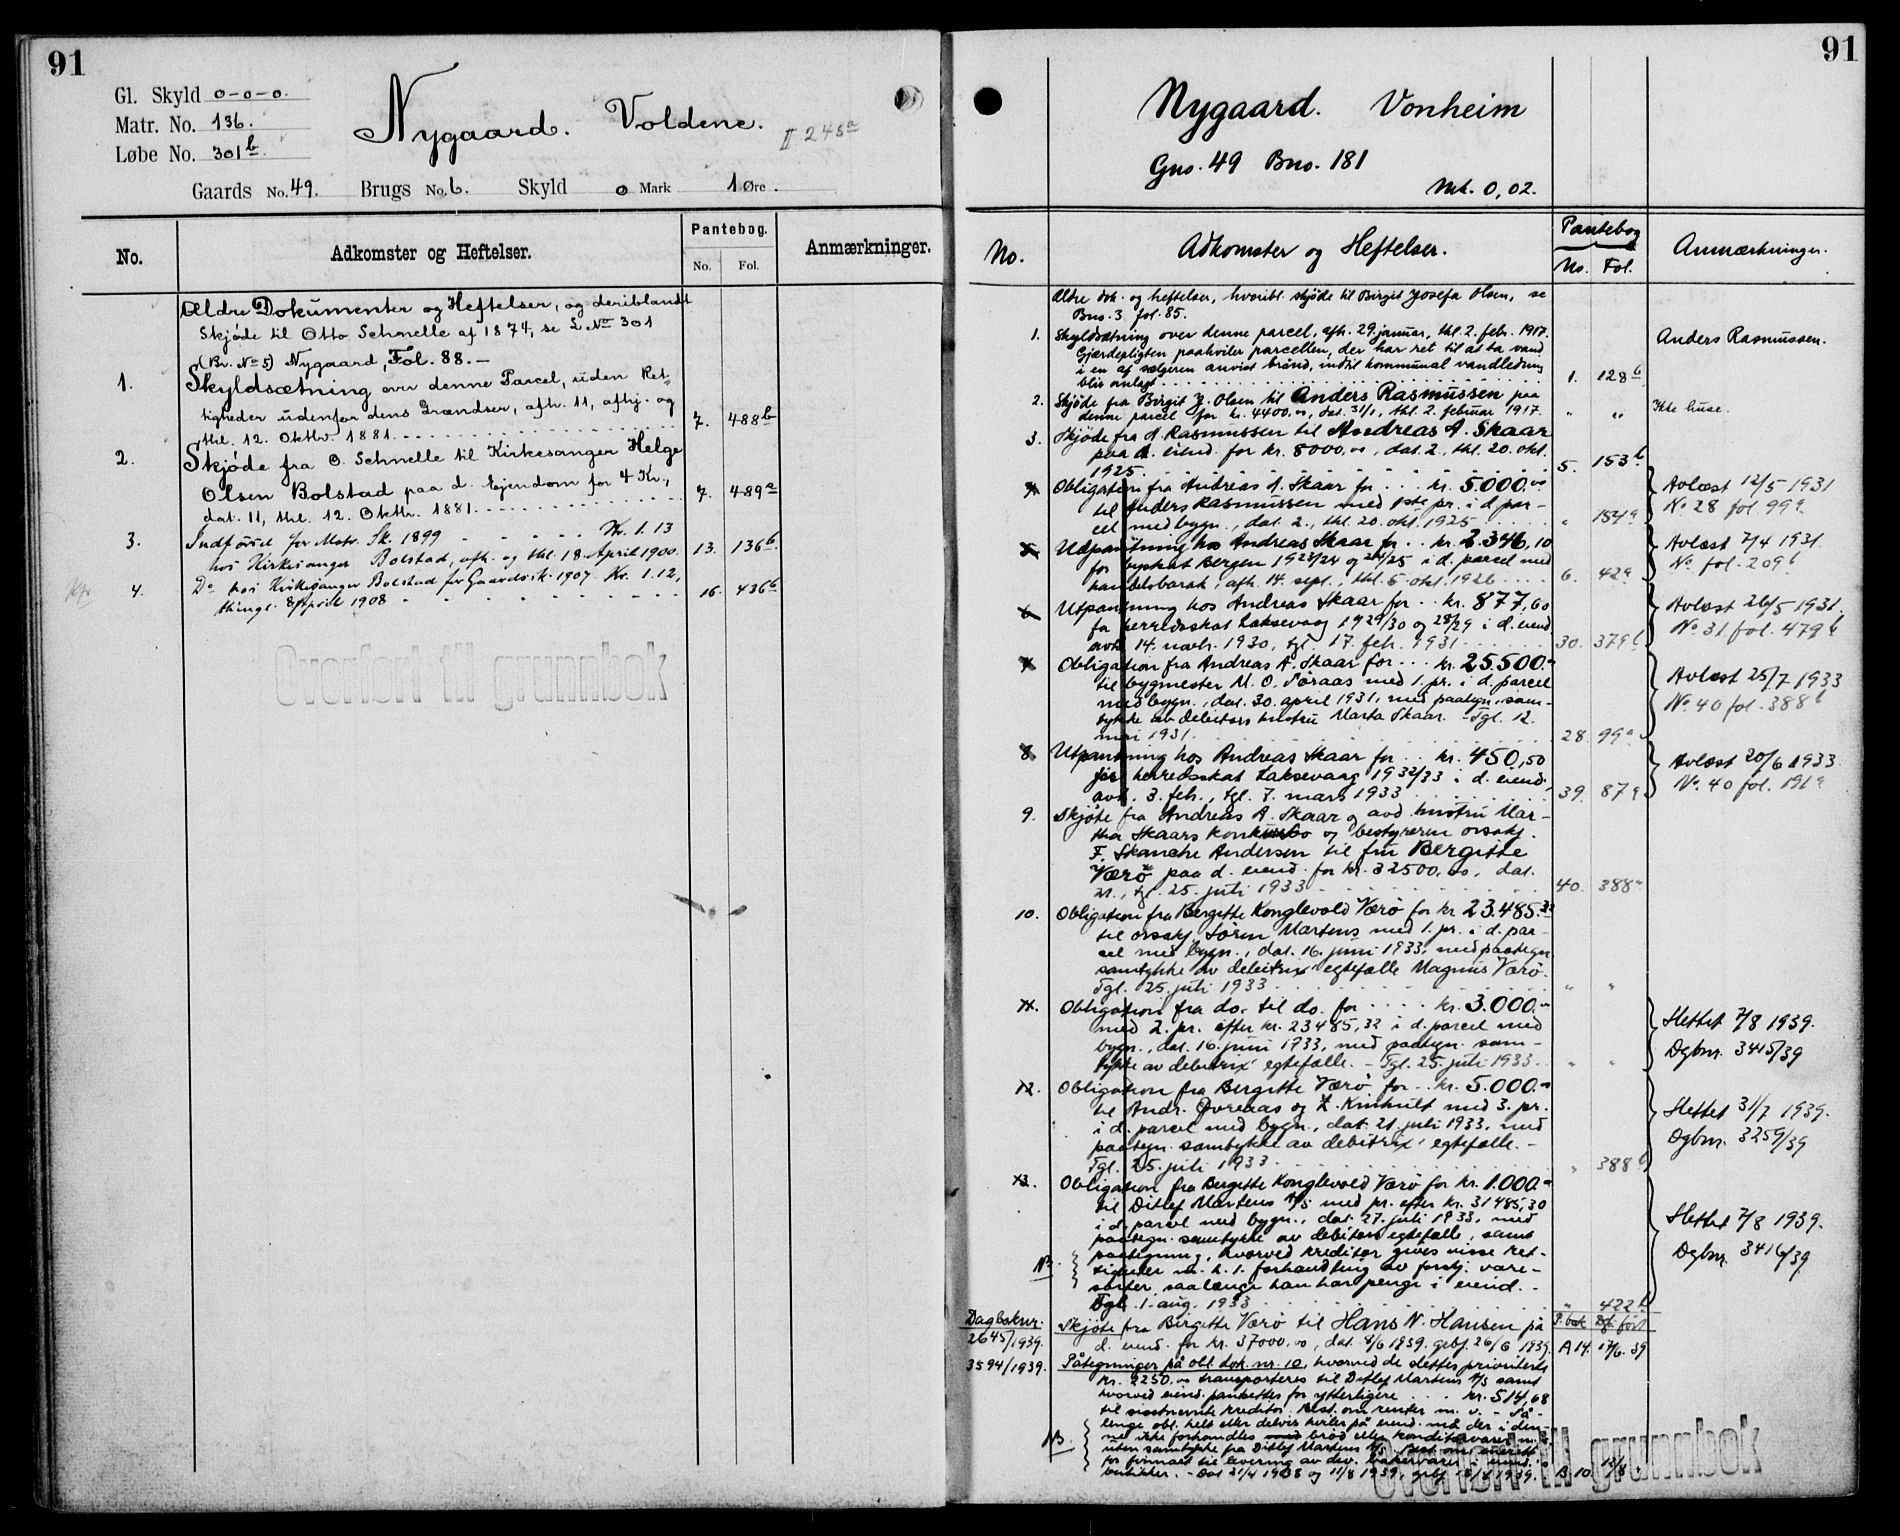 91
Gl. Skyld 0-0-0.
Matr. No. 136.
Løbe No. 301 b.
Nygaard. Voldene.
II 245 a
Gaards No. 49. Brugs No. 6. Skyld 0 Mark 1 Øre.
No.
Adkomster og Heftelser.
Pantebog.
No. Fol.
Anmærkninger.
Ældre Dokumenter og Heftelser, og deriblandt
Skjøde til Otto Schnelle af 1874, se L. No 301
(Br. No 5) Nygaard, Fol. 88. —
1. Skyldsætning over denne Parcel, uden Ret-
tigheder udenfor dens Grændser, afh. 11, afhj. og
thl. 12. Oktbr. 1881. 7. 488 b
2. Skjøde fra O. Schnelle til Kirkesanger Helge
Olsen Bolstad paa d. Ejendom for 4 Kr.,
dat. 11, thl. 12. Oktbr. 1881. 7. 489 a
3. Indførsel for Matr. Sk. 1899 Kr. 1.13
hos Kirkesanger Bolstad, afh. og thl. 18. April 1900. 13. 136 b
4. Do hos Kirkesanger Bolstad for Gaardsk. 1907 Kr. 1.12,
thingl. 8 April 1908 16. 436 b
Overført til grunnbok
91
Nygaard. Vonheim
Gno. 49 Bno. 181
Mk. 0,02.
No.
Adkomster og Heftelser.
Pantebog
No. Fol.
Anmærkninger.
Ældre dok. og heftelser, hvoribl. skjøde til Birgit Josefa Olsen, se
Bno. 3 fol. 85.
1. Skyldsætning over denne parcel, afh. 29. januar, thl. 2. febr. 1917. Anders Rasmussen.
Gjærdepligten paahviler parcellen, der har ret til at ta vand
i en af sælgeren anvist brønd, indtil kommunal vandledning
blir anlagt 1. 128 b
2. Skjøde fra Birgit J. Olsen til Anders Rasmussen paa
denne parcel for kr. 4400,00, dat. 31/1, thl. 2. februar 1917. " " Ikke huse.
3. Skjøde fra A. Rasmussen til Andreas A. Skaar
paa d. eiend. for kr. 8000,00, dat. 2., thl. 20. okt.
1925. 5. 153 b
4. Obligation fra Andreas A. Skaar for kr. 5.000,00
til Anders Rasmussen med 1ste pr. i d. par-
cel med bygn., dat. 2., thl. 20. okt. 1925 " 154 a
Avlæst 12/5 1931
No 28 fol. 99 a.
5. Utpantning hos Andreas Skaar for kr. 2.346,10
for byskat Bergen 1923/24 og 24/25 i d. parcel med
handelsbarak, afh. 14. sept., thl. 5. okt. 1926 6. 42 a
Avlæst 7/4 1931.
No fol. 209 b
6. Utpantning hos Andreas Skaar for kr. 877,60
for herredsskat Laksevaag 1929/30 og 28/29 i d. eiend.
avh. 14. novbr. 1930, tgl. 17. feb. 1931 30. 379 b
Avlæst 26/5 1931.
No 31 fol. 479 b
7. Obligation fra Andreas A. Skaar for kr. 25.500.-
til bygmester M. O. Søraas med 1. pr. i d. parcel
med bygn., dat. 30. april 1931, med paategn. sam-
tykke av debitors hustru Marta Skaar. - Tgl. 12.
mai 1931. 28. 99 a
Avlæst 25/7 1933
No. 40 fol. 388 b
8. Utpantning hos Andreas Skaar for kr. 450,50
for herredsskat Laksevaag 1932/33 i d. eiend.
avh. 3. feb., tgl. 7. mars 1933 39. 87 a
Avlæst 20/6 1933.
No. 40 fol. 191 a
9. Skjøte fra Andreas A. Skaar og avd. hustru Mar-
tha Skaars konkursbo og bestyreren orsakf.
F. Skanche Andersen til fru Bergitte
Værø paa d. eiend. for kr. 32500,00, dat.
21., tgl. 25. juli 1933 40. 388 a
10. Obligation fra Bergitte Konglevold Værø for kr. 23.485.32
til orsakf. Søren Martens med 1. pr. i d. par-
cel med bygn., dat. 16. juni 1933, med paategn.
samtykke av debitrix' egtefælle Magnus Værø.
Tgl. 25. juli 1933 " "
11. Obligation fra do. til do. for kr. 3.000.-
med 2. pr. efter kr. 23485,32 i d. parcel med
bygn., dat. 16. juni 1933, med paategn. sam-
tykke av debitrix' egtefælle. - Tgl. 25. juli 1933. " "
Slettet 7/8 1939.
Dgbnr. 3415/39
12. Obligation fra Bergitte Værø for kr. 5.000.-
til Andr. Øvreaas og Z. Kinhult med 3. pr.
i d. parcel med bygn., dat. 21. juli 1933, med
paategn. samtykke av debitrix' egtefælle. -
Tgl. 25. juli 1933 " 388 b
Slettet 31/7 1939.
Dgbnr. 3259/39
13. Obligation fra Bergitte Konglevold Værø for kr. 1.000.-
til Ditlef Martens A/S med pr. efter kr. 31485,30
i d. parcel med bygn., dat. 27. juli 1933, med
paategn. samtykke av debitors egtefælle, samt
paategning, hvorved kreditor gives visse ret-
NB. tigheter m. h. t. forhandling av forskj. vare-
sorter, saalænge han har penge i eiend. -
Tgl. 1. aug. 1933 " 422 b
Slettet 7/8 1939.
Dgbnr. 3416/39
Dagboknr. P. bok
2645/1939. Skjøte fra Birgitte Værø til Hans N. Hansen på
d. eiend. for kr. 37000,00, dat. 4/6 1939. gebf. 26/6 1939. A 14. 17/6. 39
3594/1939. Påtegninger på obl. dok. nr. 10, hvorved de dettes prioriterte
kr. 2250,00 transporteres til Ditlef Martens A/S samt
hvorved eiend. pantsettes for ytterligere kr. 514,68
til sistnevnte kreditor. Best. om renter m. v. - Så-
lenge obl. helt eller delvis hviler på eiend. må der i den-
NB. ne ikke forhandles brød eller konditorvarer m. v.
uten samtykke fra Ditlef Martens A/S. Best. om enerett
for firmaet til levering av div. bakervarer i eiend.s
butikker. - Dat. 21/4 1938 og 11/8 1939, B 10.
Overført til grunnbok